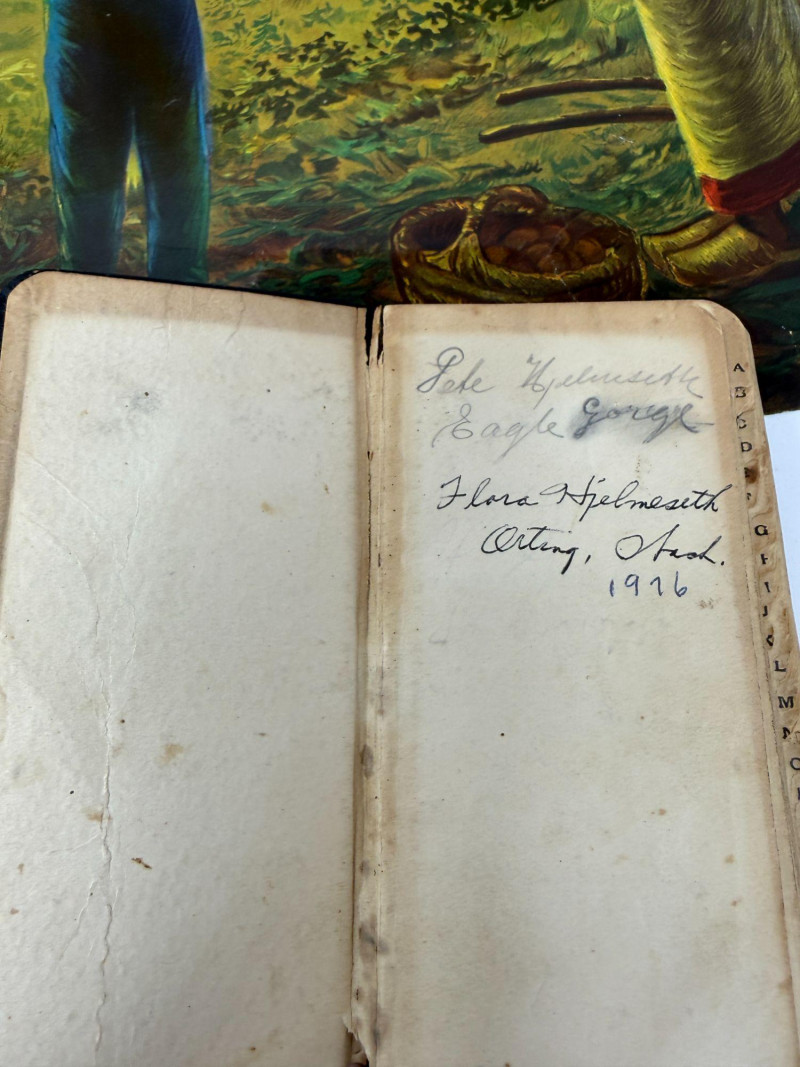 Pete Hjelmseth
Eagle Gorge
Flora Hjelmeseth
Orting, Wash.
1976
A
B
C
D
E
F
G
H
I
J
K
L
M
N
O